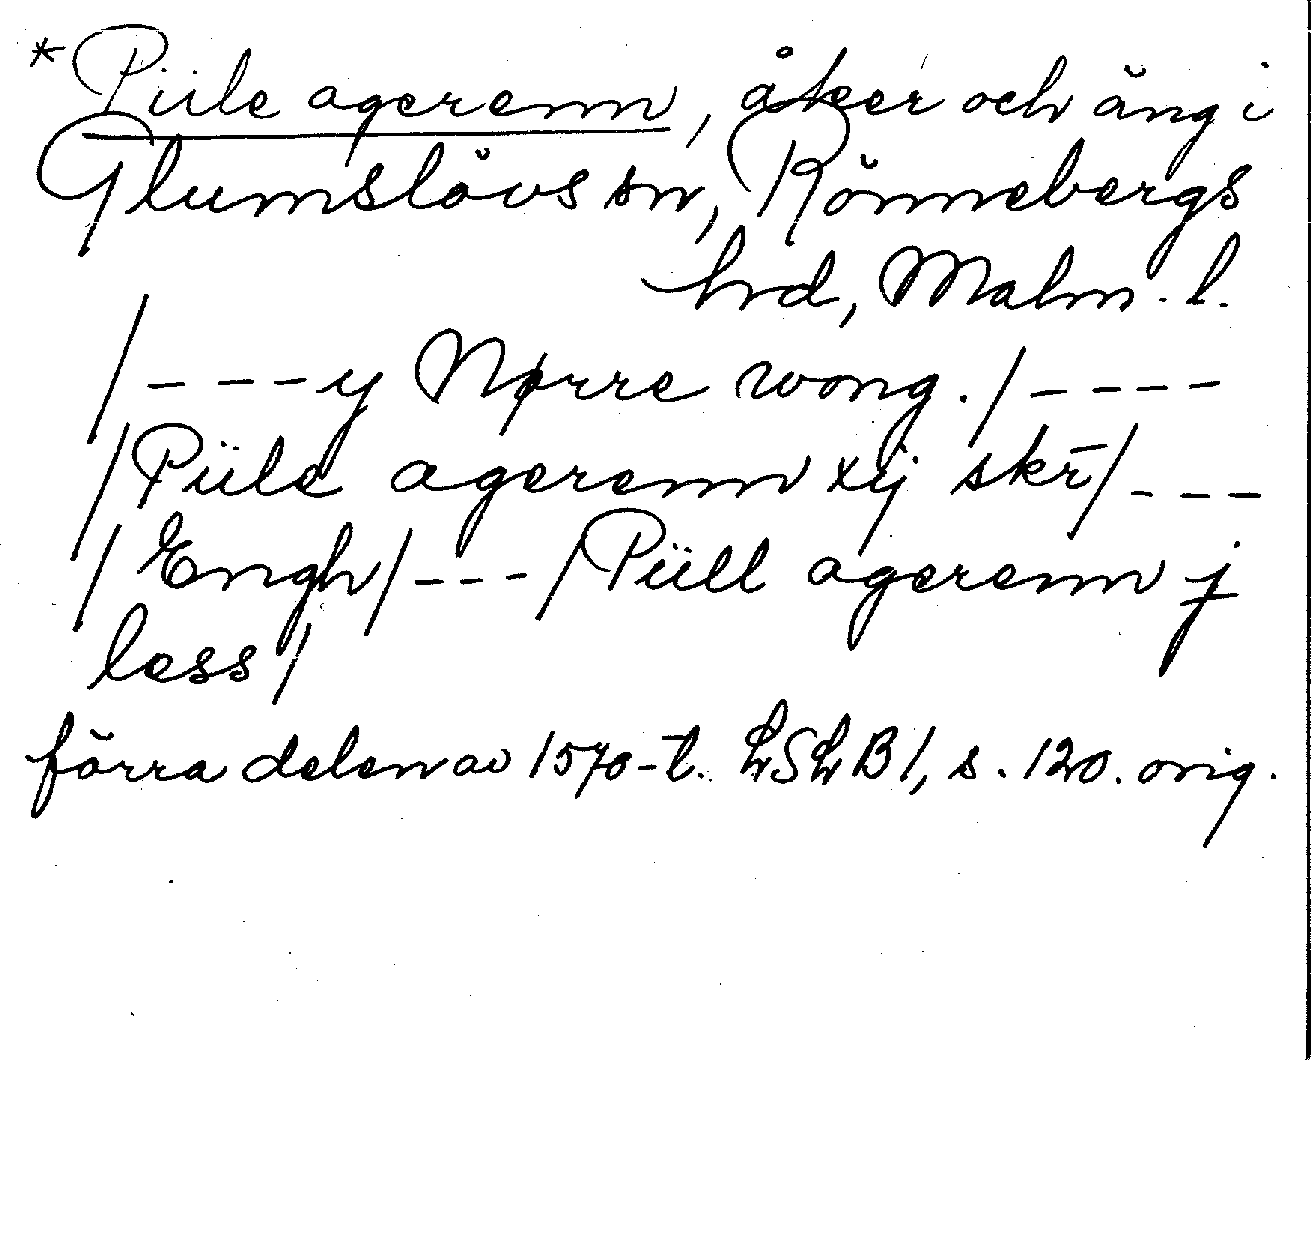 *Piile agerenn, åker och äng i
Glumslövs sn, Rönnebergs
hrd, Malm. l.
/ - - - y Nørre wong. / - - - -
/ Piile agerenn xij skr̄ / - - -
/ Engh / - - - / Piill agerenn j
less /
förra delen av 1570-t. LSLB 1, s. 120. orig.